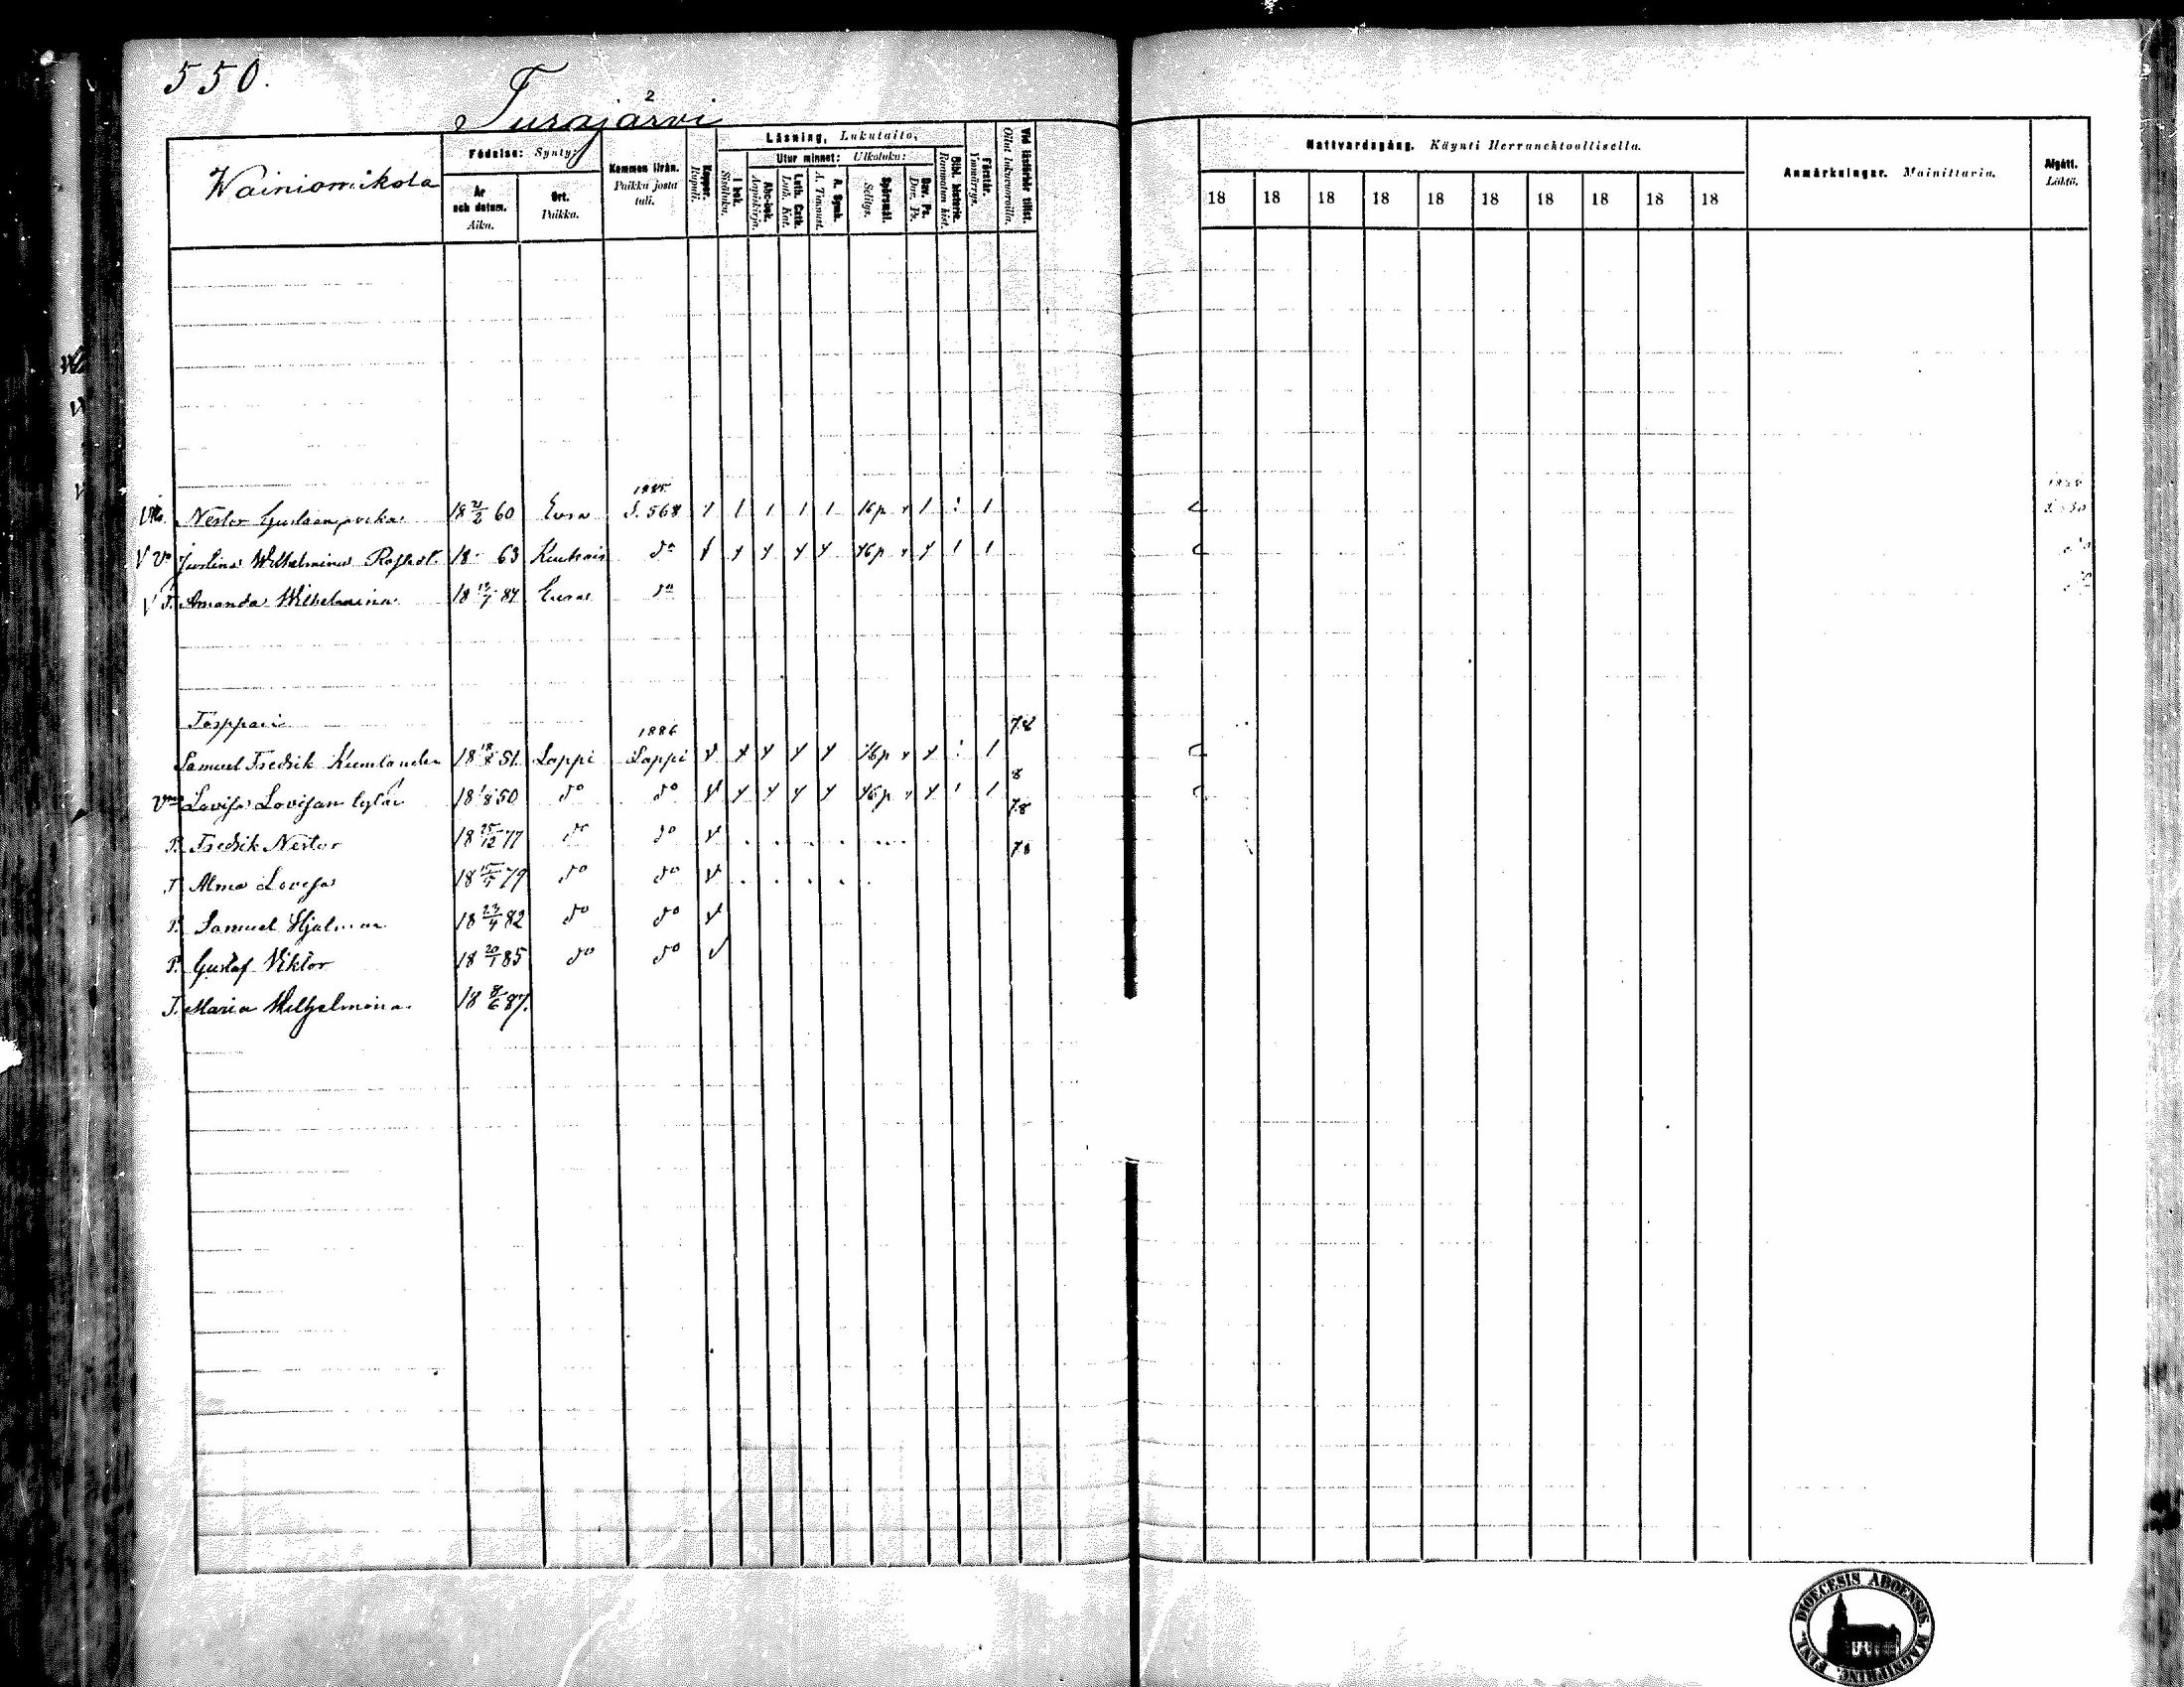 550.
Turajärvi
2
Wainiomikola
Födelse: Synty:
År och datum. Aika.
Ort. Paikka.
Kommen ifrån. Paikka josta tuli.
Koppor. Rupuli.
Läsning, Lukutaito,
I bok. Sisäluku.
Utur minnet: Ulkoluku:
Abc-bok. Aapiskirja.
Luth. Cath. Luth. Kat.
A. Symb. A. Tunnust.
Spörsmål. Selitys.
Dav. Ps. Dav. Ps.
Bibl. historie. Raamatun hist.
Förstår. Ymmärrys.
Vid läsförhör tillst. Ollut lukuvuorolla.
Nattvardsgång. Käynti Herranehtoollisella.
18 18 18 18 18 18 18 18 18 18
Anmärkningar. Mainittavia.
Afgått. Lähtö.
1885
Nestor Gustaanpoika 18 2/2 60 Eura S. 568 1 1 1 1 1 16p 1 1 1
Justina Wilhelmina 18 63 Kiukais do 16p 1 1
T. Amanda Wilhelmina 18 84 Eura do
Torppari
1886 78
Samuel Fredrik Kumlander 18 18/8 51 Lappi Lappi 16p 1
8
Lovisa Lovisan 18 1/8 50 do do 16p 1 1
78
P. Fredrik Nestor 18 25/12 77 do do
78
T. Alma Lovisa 18 79 do do
P. Samuel Hjalmar 18 23/4 82 do do
P. Gustaf Viktor 18 20/1 85 do do
T. Maria Wilhelmina 18 8/6 87.
DIOECESIS ABOENSIS MAGNIPRINC. FINL.